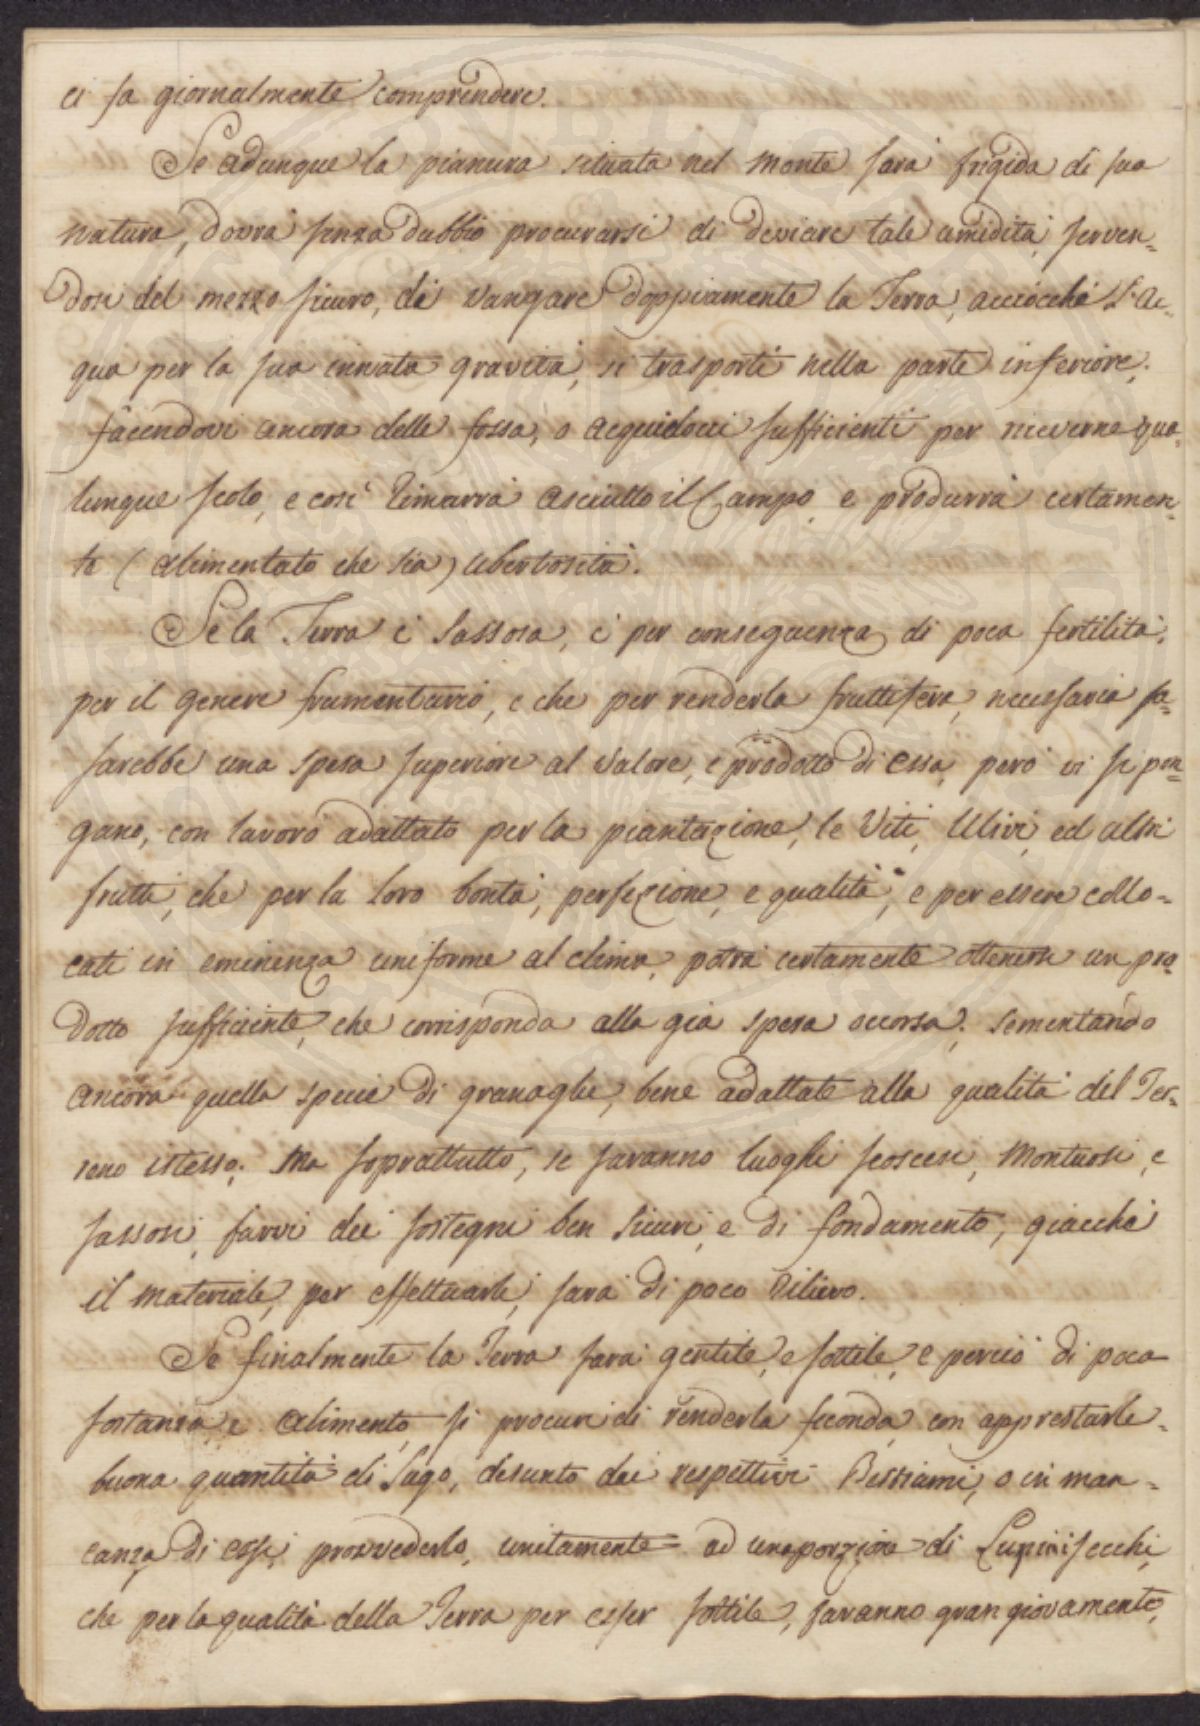 ci fa giornalmente comprendere.
Se adunque la pianura situata nel Monte sarà frigida di sua
natura, dovrà senza dubbio procurarsi di deviare tale umidità, serven=
dosi del mezzo sicuro, di vangare doppiamente la Terra, acciocché l'Ac=
qua per la sua innata gravità, si trasporti nella parte inferiore;
facendovi ancora delle fossa, o acquidocci sufficienti per riceverne qua=
lunque scolo, e così rimarrà asciutto il Campo, e produrrà certamen=
te (alimentato che sia) ubertosità.
Se la Terra è Sassosa, è per conseguenza di poca fertilità,
per il genere frumentario, e che per renderla fruttifera, necessaria sa=
sarebbe una spesa superiore al valore, e prodotto di essa, però vi si pon=
gano, con lavoro adattato per la piantazione, le Viti, Ulivi, ed altri
frutti, che per la loro bontà, perfezione, e qualità, e per essere collo=
cati in eminenza uniforme al clima, potrà certamente ottenersi un pro=
dotto sufficiente, che corrisponda alla già spesa occorsa; sementando
ancora quella specie di granaglie, bene adattate alla qualità del Ter=
reno istesso. Ma soprattutto, se saranno luoghi scoscesi, Montuosi, e
sassosi, farvi dei sostegni ben sicuri, e di fondamento, giacché
il materiale, per effettuarli, sarà di poco rilievo.
Se finalmente la Terra sarà gentile, e sottile, e perciò di poca
sostanza, e alimento, si procuri di renderla feconda, con apprestarle
buona quantità di Sugo, desunto dai respettivi Bestiami, o in man=
canza di essi, provvederlo, unitamente ad una porzione di Lupini secchi,
che per la qualità della Terra per esser sottile, saranno gran giovamento,